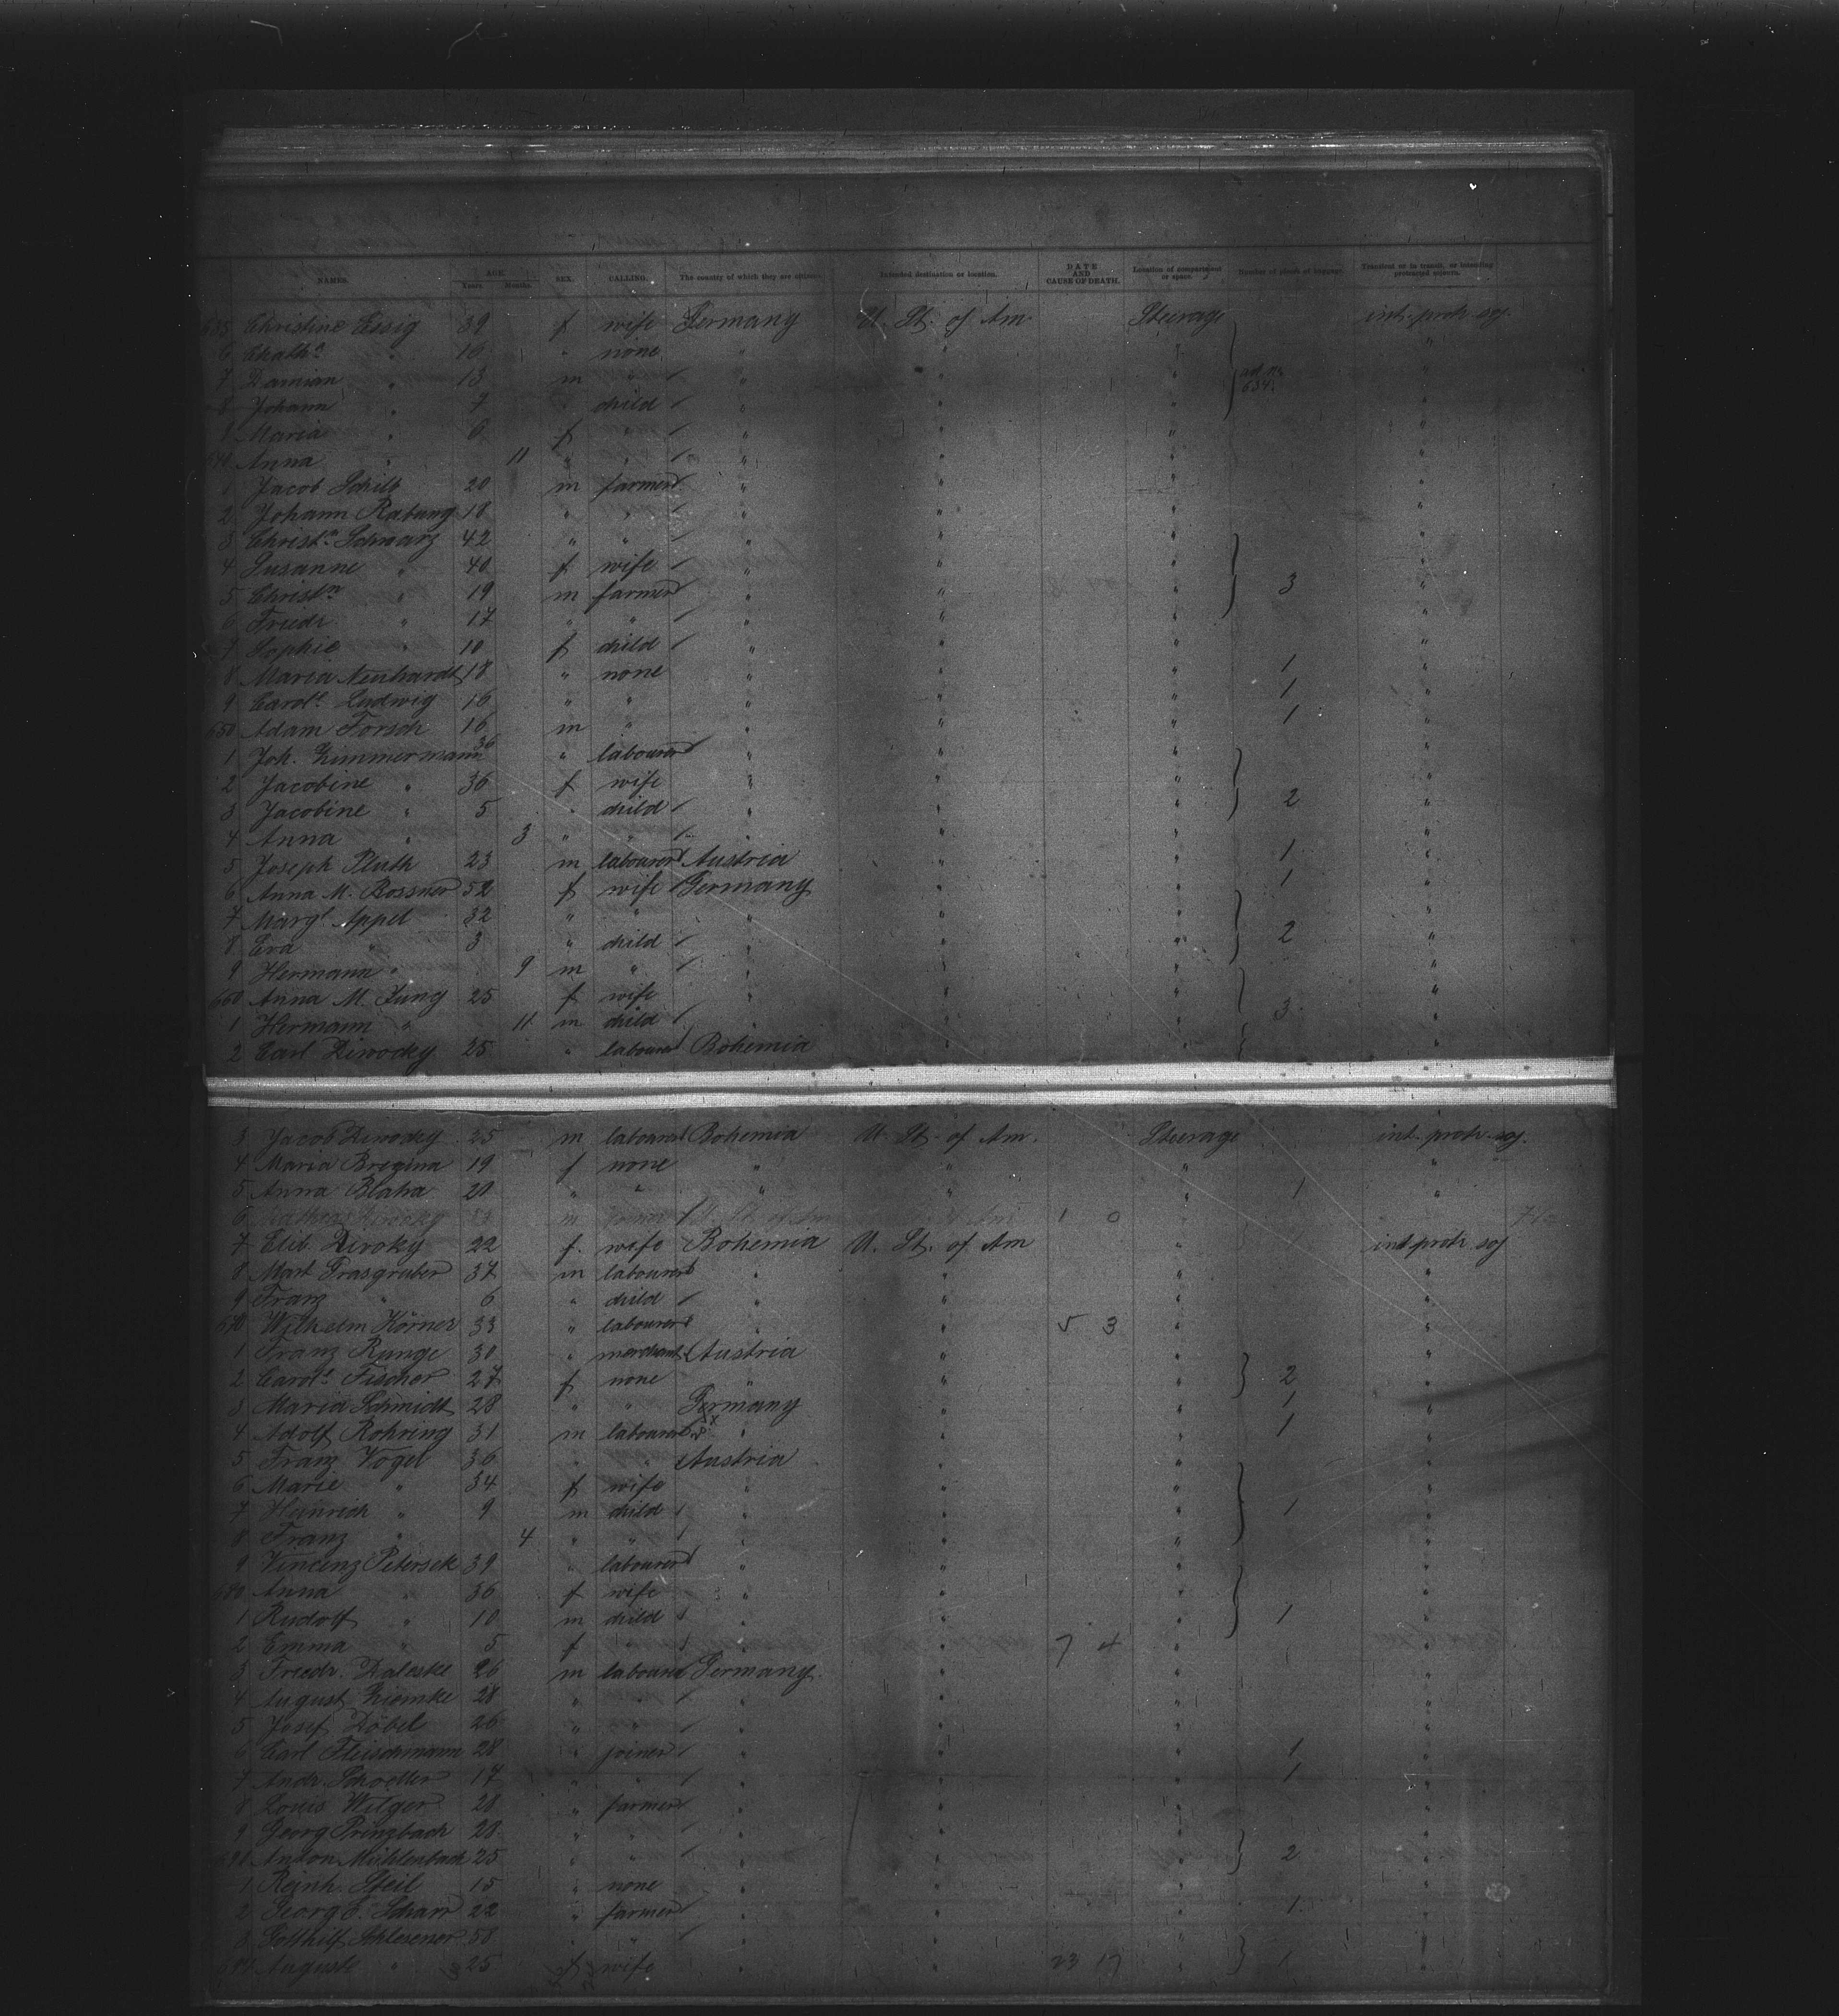 NAMES. AGE. Years. Months. SEX. CALLING. The country of which they are citizens. Intended destination or location. DATE AND CAUSE OF DEATH. Location of compartment or space. Number of pieces of baggage. Transient or in transit, or intending protracted sojourn.
635 Christine Essig 39 f wife Germany U. St. of Am. Steerage int. protr. soj.
6 " 16 " none " " " "
7 Damian " 13 m " " " " ad No. 634. "
8 Johann " 7 " child " " " "
9 Maria " 6 f " " " " "
640 Anna " 11 " " " " " "
1 Jacob Schilb 20 m farmer " " " "
2 Johann Rabung 18 " " " " " "
3 Christn Schwarz 42 " " " " " "
4 Susanne " 40 f wife " " " "
5 Christn " 19 m farmer " " " 3 "
6 Friedr. " 17 " " " " " "
7 Sophie " 10 f child " " " "
8 Maria Neuhardt 18 " none " " " 1 "
9 Carole Ludwig 16 " " " " " 1 "
650 Adam Forsch 16 m " " " " 1 "
1 Joh. Zimmermann 36 " labourer " " " "
2 Jacobine " 36 f wife " " " "
3 Jacobine " 5 " child " " " 2 "
4 Anna " 3 " " " " " "
5 Joseph Pluth 23 m labourer Austria " " 1 "
6 Anna M. Bossner 52 f wife Germany " " 1 "
7 Margt Appel 32 " " " " " "
8 Eva " 3 " child " " " 2 "
9 Hermann " 9 m " " " " "
660 Anna M. Jung 25 f wife " " " "
1 Hermann " 11 m child " " " 3 "
2 Carl Ziwocky 25 " labourer Bohemia " " "
3 Jacob Ziwocky 25 m labourer Bohemia U. St. of Am. Steerage int. protr. soj.
4 Maria Bregina 19 f none " " " "
5 Anna Blaha 20 " " " " " 1 "
6 m 1 0
7 Elis. Ziroky 22 f. wife Bohemia U. St. of Am " int. protr. soj
8 Mart Grasgruber 37 m labourer " " " "
9 Franz " 6 " child " " " "
670 Wilhelm Körner 33 " labourer " " 5 3 " "
1 Franz Runge 30 " merchant Austria " " "
2 Carole Fischer 27 f none " " " 2 "
3 Maria Schmidt 28 " " Germany " " 1 "
4 Adolf Rohring 31 m labourer " " " 1 "
5 Franz Vogel 36 " " Austria " " "
6 Marie " 34 f wife " " " "
7 Heinrich " 9 m child " " " 1 "
8 Franz " 4 " " " " " "
9 Vincenz Petersek 39 " labourer " " " "
680 Anna " 36 f wife " " " "
1 Rudolf " 10 m child " " " 1 "
2 Emma " 5 f " " " 7 4 " "
3 Friedr. Daleske 26 m labourer Germany " " "
4 August Ziemke 28 " " " " " "
5 Josef Döbel 26 " " " " " "
6 Carl Fleischmann 28 " joiner " " " 1 "
7 Andr. Schoeller 17 " " " " " 1 "
8 Louis Wilger 28 " farmer " " " "
9 Georg Prinzbach 28 " " " " " "
690 Anton Mühlenbach 25 " " " " " 2 "
1 Reinh. Pfeil 15 " none " " " "
2 Georg Scharr 22 " farmer " " " 1 "
3 Gotthilf Schlesener 58 " " " " " "
694 Auguste " 25 f wife " " 23 17 " 1 "